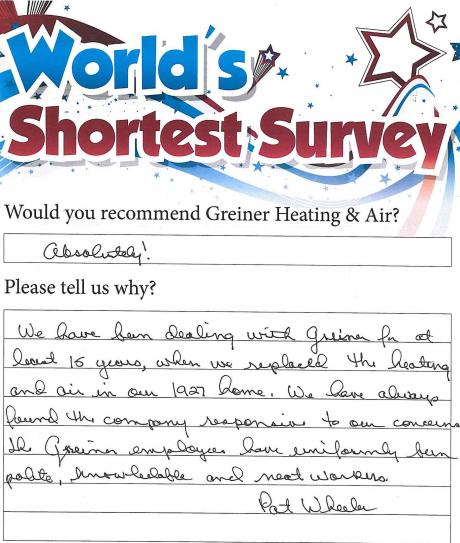 World's
Shortest Survey
Would you recommend Greiner Heating & Air?
Absolutely!
Please tell us why?
We have been dealing with Greiner for at
least 15 years, when we replaced the heating
and air in our 1927 home. We have always
found the company responsive to our concerns
the Greiner employees have uniformly been
polite, knowledable and neat workers.
Pat Wheeler